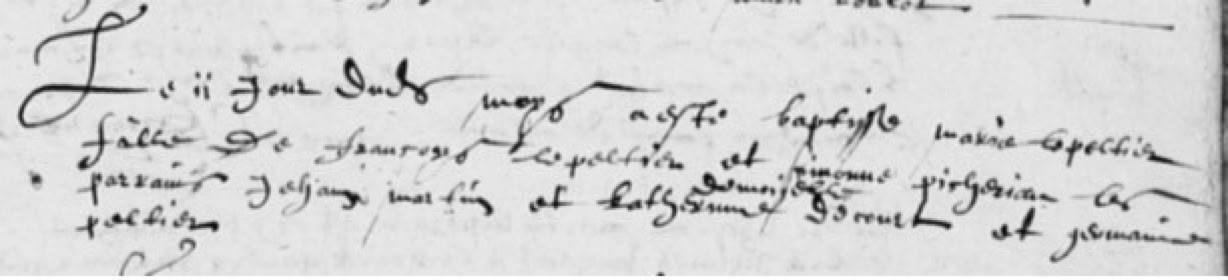 Le ii Jour duds moys a este baptisse marie lepeltier
fille de francoys lepeltier et simonne picherian les
parrains Jehan martin et katherinne demoiselle decourt et germainne
peltier